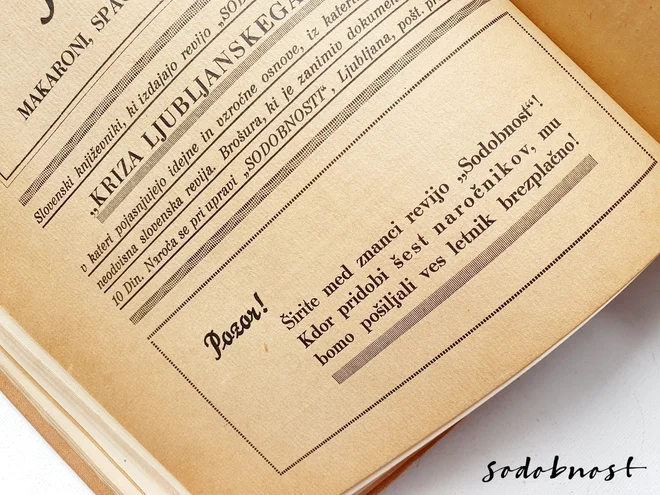 MAKARONI, SPAG
Slovenski književniki, ki izdajajo revijo „SOD
„KRIZA LJUBLJANSKEGA
v kateri pojasnjujejo idejne in vzročne osnove, iz kater
neodvisna slovenska revija. Brošura, ki je zanimiv dokume
10 Din. Naroča se pri upravi „SODOBNOSTI“, Ljubljana, pošt. pr
Pozor!
Širite med znanci revijo „Sodobnost“!
Kdor pridobi šest naročnikov, mu
bomo pošiljali ves letnik brezplačno!
sodobnost